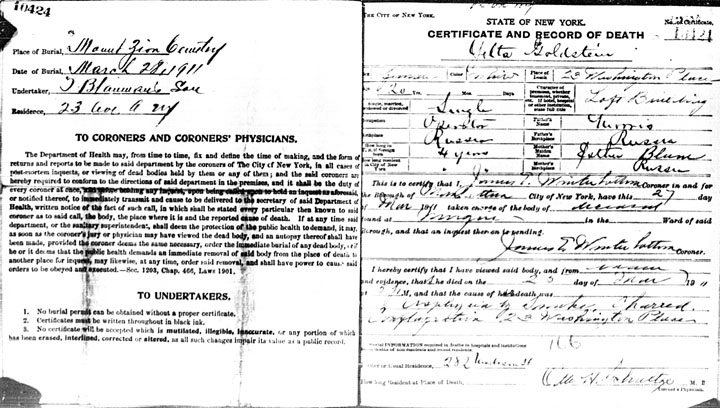 10424
Place of Burial, Mount Zion Cemetery
Date of Burial, March 28, 1911
Undertaker, J Blauman's Son
Residence, 23 Ave A NY
TO CORONERS AND CORONERS' PHYSICIANS.
The Department of Health may, from time to time, fix and define the time of making, and the form of
returns and reports to be made to said department by the coroners of The City of New York, in all cases of
post-mortem inquests, or viewing of dead bodies held by them or any of them; and the said coroners are
hereby required to conform to the directions of said department in the premises, and it shall be the duty
of every coroner at once, and before holding any inquest, upon being called upon to hold an inquest as aforesaid,
or notified thereof, to immediately transmit and cause to be delivered to the secretary of said Department of
Health, written notice of the fact of such call, in which shall be stated every particular then known to said
coroner as to said call, the body, the place where it is and the reported cause of death. If at any time said
department, or the sanitary superintendent, shall deem the protection of the public health to demand, it may,
as soon as the coroner's jury or physician may have viewed the dead body, and an autopsy thereof shall have
been made, provided the coroner deems the same necessary, order the immediate burial of any dead body, or if
he or it deems that the public health demands an immediate removal of said body from the place of death to
another place for inquest, may likewise, at any time, order said removal, and shall have power to cause said
orders to be obeyed and executed.—Sec. 1203, Chap. 466, Laws 1901.
TO UNDERTAKERS.
1. No burial permit can be obtained without a proper certificate.
2. Certificates must be written throughout in black ink.
3. No certificate will be accepted which is mutilated, illegible, inaccurate, or any portion of which
has been erased, interlined, corrected or altered, as all such changes impair its value as a public record.
THE CITY OF NEW YORK.
STATE OF NEW YORK.
CERTIFICATE AND RECORD OF DEATH
No. of Certificate,
10424
Yetta Goldstein
Color White
Place of Death 23 Washington Place
20 Mos. Days
Character of premises, whether tenement, private, etc. If hotel, hospital or other institution, state full title
Loft Building
Single
Operator
Father's Name
Morris
Russia
Father's Birthplace
Russia
4 years
Mother's Maiden Name
Esther Blum
Mother's Birthplace
Russia
This is to certify that I, James T. Winterbottom Coroner in and for
the Borough of City of New York, have this 27 day
of Mar 1911 taken charge of the body of deceased
found at Morgue in the Ward of said
Borough, and that an inquest thereon is pending.
James T. Winterbottom Coroner.
I hereby certify that I have viewed said body, and from
and evidence, that she died on the 25 day of Mar 1911
M, and that the cause of her death was
Asphyxia by Smoke, Charred.
Conflagration 23 Washington Place
SPECIAL INFORMATION required in deaths in hospitals and institutions
and deaths of non-residents and recent residents.
Usual Residence, 282 Madison St
How long Resident at Place of Death,
Otto H. Schultze M. D.
Coroner's Physician.